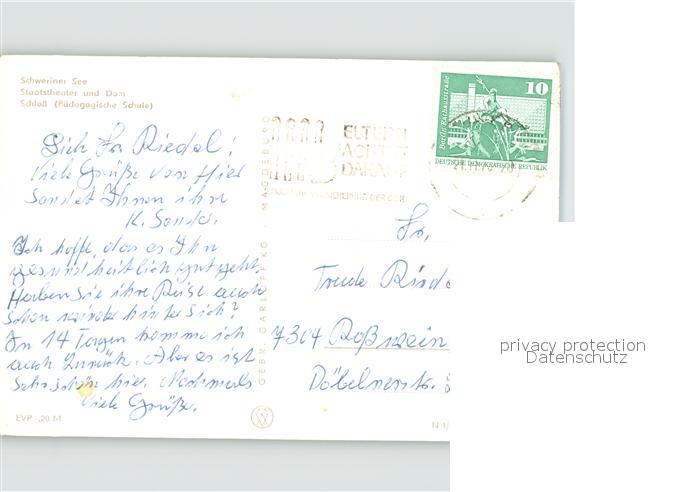 Schweriner See
Staatstheater und Dom
Schloß (Pädagogische Schule)
Lieb Fr Riedel!
Viele Grüße von Hier
Sendet Ihnen ihre
K. Sander.
Ich hoffe das es Ihn
gesundheitlich gut geht.
Haben Sie ihre Reise auch
schon wieder hinter sich?
In 14 Tagen komme ich
auch zurück. Aber es ist
Sehr schön hier. Nochmals
Viele Grüße.
EVP -,20 M
GEBR. GARLOFF KG · MAGDEBURG
ELTERN
ACHTET
DARAUF
DER DDR
Berlin, Rathausstraße
10
DEUTSCHE DEMOKRATISCHE REPUBLIK
Fr.
Trude
7304 Roßwein
Döbelnerstr.
N 1/
privacy protection
Datenschutz